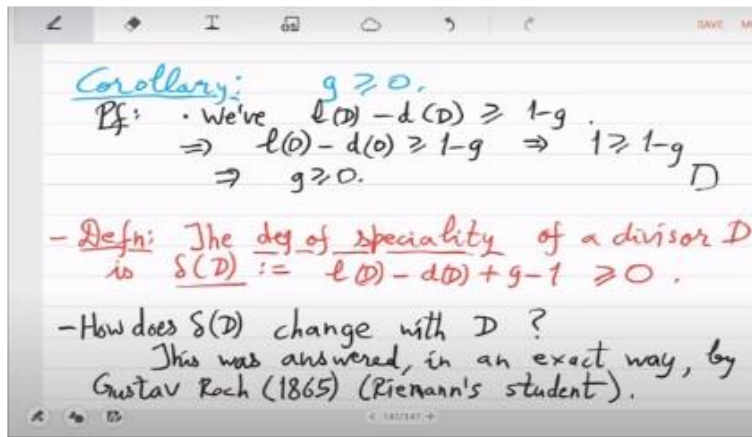 SAVE
Corollary: g ≥ 0.
Pf: · We've l(D) - d(D) ≥ 1-g.
⇒ l(0) - d(0) ≥ 1-g ⇒ 1 ≥ 1-g
⇒ g ≥ 0. □
- Defn: The deg of speciality of a divisor D
is δ(D) := l(D) - d(D) + g - 1 ≥ 0.
- How does δ(D) change with D ?
This was answered, in an exact way, by
Gustav Roch (1865) (Riemann's student).
< 142/147 +